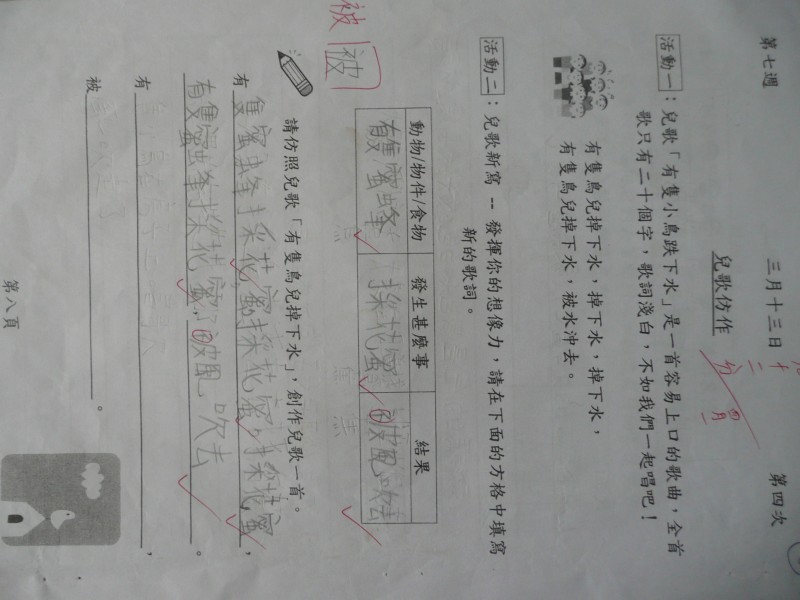 第七週 三月十三日 第四次
兒歌仿作
活動一：兒歌「有隻小鳥跌下水」是一首容易上口的歌曲，全首
歌只有二十個字，歌詞淺白，不如我們一起唱吧！
有隻鳥兒掉下水，掉下水，掉下水，
有隻鳥兒掉下水，被水沖去。
活動二：兒歌新寫 -- 發揮你的想像力，請在下面的方格中填寫
新的歌詞。
動物/物件/食物 發生甚麼事 結果
有隻蜜蜂 採花蜜 被風吹去
被 被
請仿照兒歌「有隻鳥兒掉下水」，創作兒歌一首。
有隻蜜蜂採花蜜，採花蜜，採花蜜，
有隻蜜蜂採花蜜，被風吹去。
有，
被。
第八頁